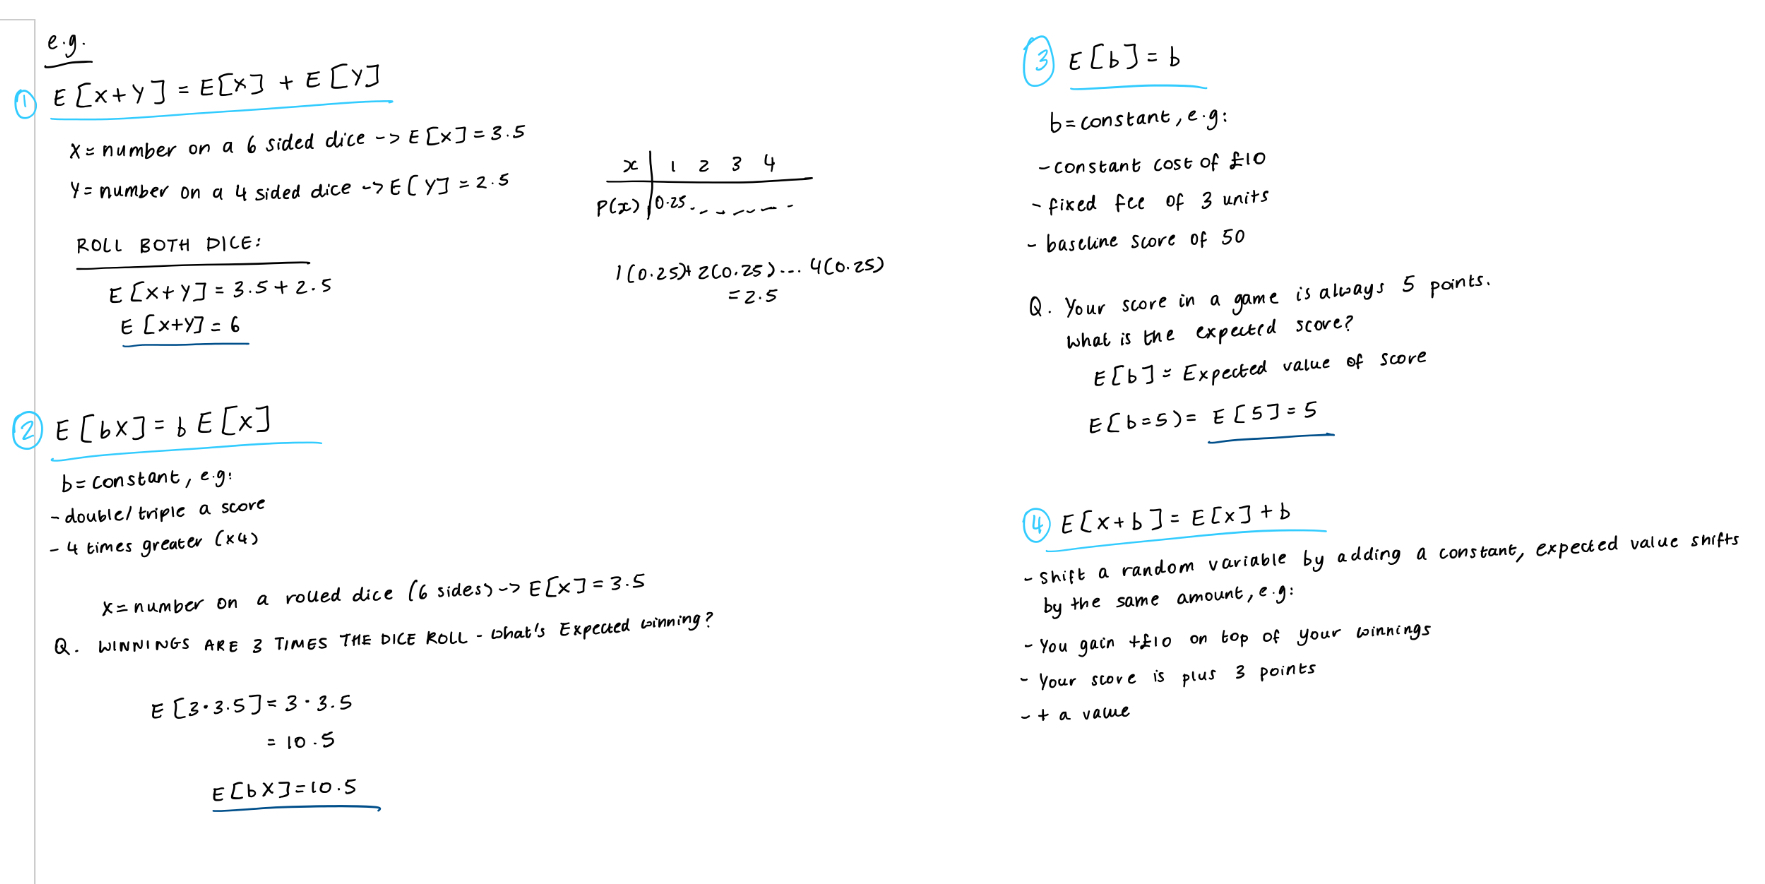 e.g.
① E[X+Y] = E[X] + E[Y]
X = number on a 6 sided dice -> E[X] = 3.5
Y = number on a 4 sided dice -> E[Y] = 2.5
x 1 2 3 4
P(x) 0.25 - - - - - -
ROLL BOTH DICE:
E[X+Y] = 3.5 + 2.5
E[X+Y] = 6
1(0.25)+ 2(0.25)... 4(0.25)
= 2.5
② E[bX] = b E[X]
b = constant, e.g:
- double/triple a score
- 4 times greater (x4)
X = number on a rolled dice (6 sides) -> E[X] = 3.5
Q. WINNINGS ARE 3 TIMES THE DICE ROLL - what's Expected winning?
E[3·3.5] = 3·3.5
= 10.5
E[bX] = 10.5
③ E[b] = b
b = constant, e.g:
- constant cost of £10
- fixed fee of 3 units
- baseline score of 50
Q. Your score in a game is always 5 points.
What is the expected score?
E[b] = Expected value of score
E[b=5) = E[5] = 5
④ E[X+b] = E[X] + b
- Shift a random variable by adding a constant, expected value shifts
by the same amount, e.g:
- You gain +£10 on top of your winnings
- Your score is plus 3 points
- + a value